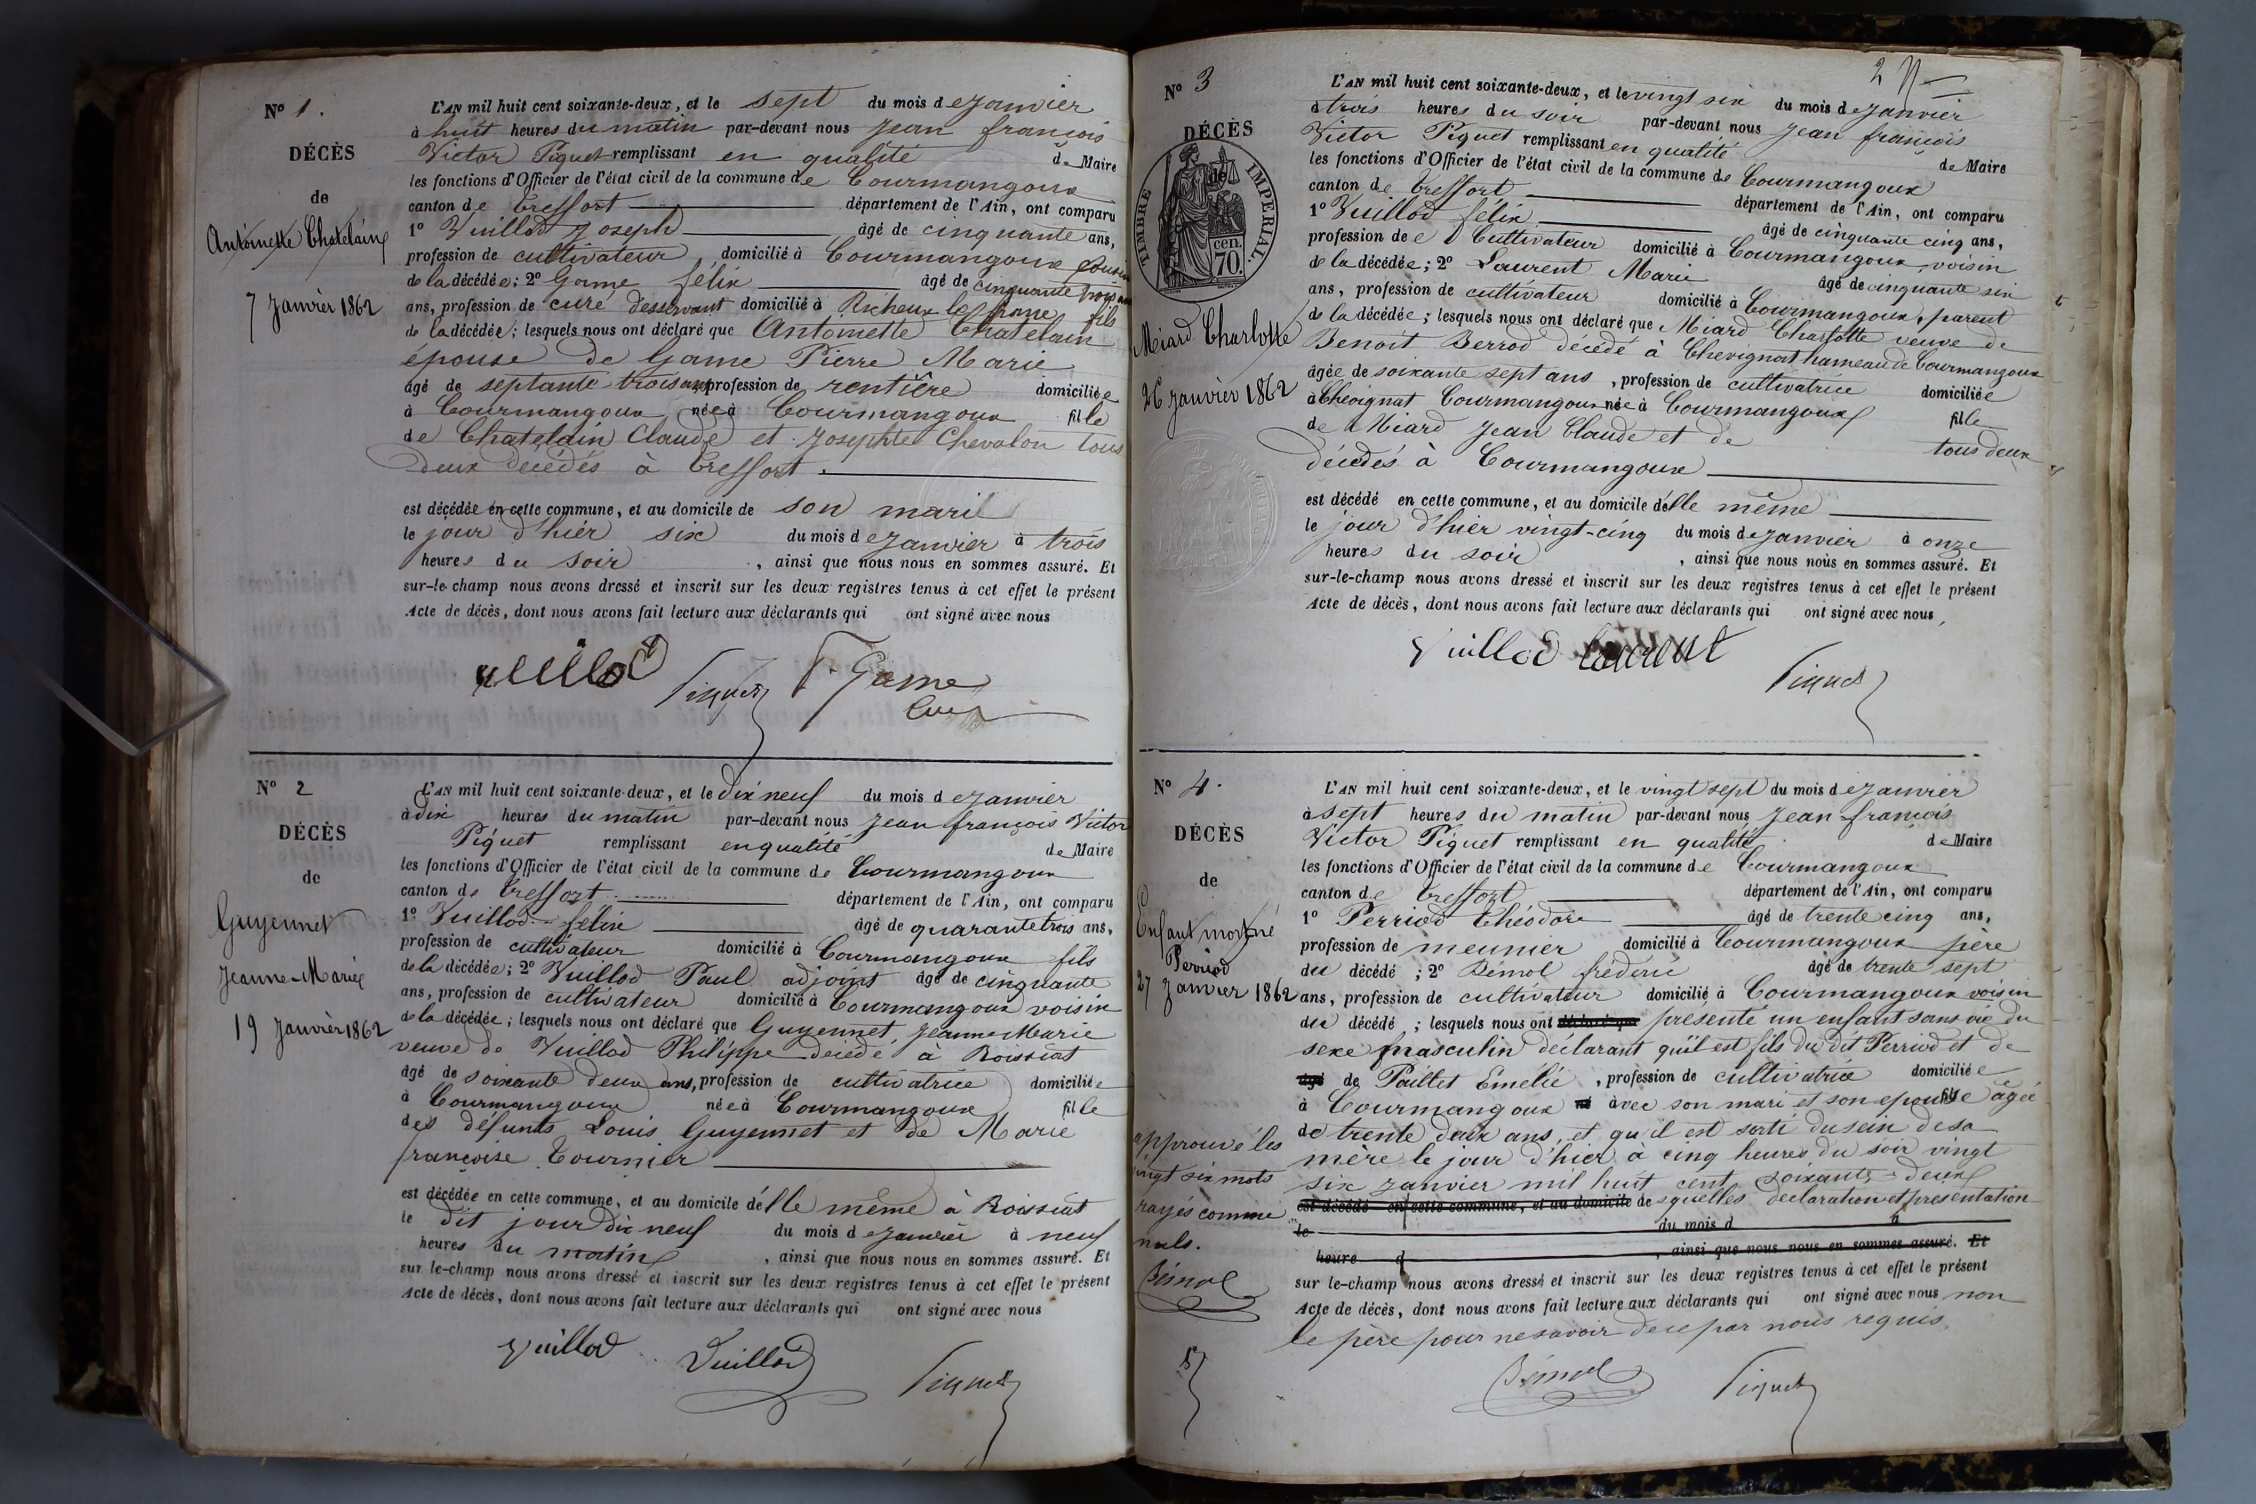 No 1.
DÉCÈS
de
Antoinette Chatelain
7 Janvier 1862
L'AN mil huit cent soixante-deux, et le sept du mois de janvier
à huit heures du matin par-devant nous Jean françois
Victor Piquet remplissant en qualité de Maire
les fonctions d'Officier de l'état civil de la commune de Courmangoux
canton de Treffort département de l'Ain, ont comparu
1o Vuillod Joseph âgé de cinquante ans,
profession de cultivateur, domicilié à Courmangoux cousin
de la décédée; 2o Game félix âgé de cinquante trois
ans, profession de curé desservant domicilié à fils
de la décédée; lesquels nous ont déclaré que Antoinette Chatelain
épouse de Game Pierre Marie
âgé de septante trois ans, profession de rentière domiciliée
à Courmangoux née à Courmangoux fille
de Chatelain Claude et Josephte Chevalon tous
deux décédés à Treffort.
est décédée en cette commune, et au domicile de son mari
le jour d'hier six du mois de janvier à trois
heures du soir, ainsi que nous nous en sommes assuré. Et
sur-le-champ nous avons dressé et inscrit sur les deux registres tenus à cet effet le présent
Acte de décès, dont nous avons fait lecture aux déclarants qui ont signé avec nous
vuillod Piquet F. Game
Curé
No 2
DÉCÈS
de
Guyennet
Jeanne-Marie
19 Janvier 1862
L'AN mil huit cent soixante-deux, et le dix neuf du mois de janvier
à dix heures du matin par-devant nous Jean françois Victor
Piquet remplissant en qualité de Maire
les fonctions d'Officier de l'état civil de la commune de Courmangoux
canton de Treffort département de l'Ain, ont comparu
1o Vuillod félix âgé de quarante trois ans,
profession de cultivateur domicilié à Courmangoux fils
de la décédée; 2o Vuillod Paul adjoint âgé de cinquante
ans, profession de cultivateur domicilié à Courmangoux voisin
de la décédée; lesquels nous ont déclaré que Guyennet Jeanne Marie
veuve de Vuillod Philippe décédé à Roissiat
âgé de soixante deux ans, profession de cultivatrice domiciliée
à Courmangoux née à Courmangoux fille
des défunts Louis Guyennet et de Marie
françoise Tournier
est décédée en cette commune, et au domicile d'elle même à Roissiat
le dit jour dix neuf du mois de janvier à neuf
heures du matin, ainsi que nous nous en sommes assuré. Et
sur le-champ nous avons dressé et inscrit sur les deux registres tenus à cet effet le présent
Acte de décès, dont nous avons fait lecture aux déclarants qui ont signé avec nous
vuillod Vuillod Piquet
2
No 3
DÉCÈS
de
TIMBRE IMPÉRIAL.
70 cen.
Miard Charlotte
26 Janvier 1862
L'AN mil huit cent soixante-deux, et le vingt six du mois de janvier
à trois heures du soir par-devant nous Jean françois
Victor Piquet remplissant en qualité de Maire
les fonctions d'Officier de l'état civil de la commune de Courmangoux
canton de Treffort département de l'Ain, ont comparu
1o Vuillod félix âgé de cinquante cinq ans,
profession de Cultivateur domicilié à Courmangoux, voisin
de la décédée; 2o Laurent Marie âgé de cinquante six
ans, profession de cultivateur domicilié à Courmangoux, parent
de la décédée; lesquels nous ont déclaré que Miard Charlotte veuve de
Benoit Berrod décédé à Chevignat hameau de Courmangoux
âgée de soixante sept ans, profession de cultivatrice domiciliée
à Chevignat Courmangoux née à Courmangoux fille
de Miard Jean Claude et de tous deux
décédés à Courmangoux
est décédé en cette commune, et au domicile d'elle même
le jour d'hier vingt-cinq du mois de janvier à onze
heures du soir, ainsi que nous nous en sommes assuré. Et
sur-le-champ nous avons dressé et inscrit sur les deux registres tenus à cet effet le présent
Acte de décès, dont nous avons fait lecture aux déclarants qui ont signé avec nous,
Vuillod Laurent Piquet
No 4.
DÉCÈS
de
Enfant mort né
Perriod
27 Janvier 1862
approuvé les
vingt six mots
rayés comme
nuls.
Bémol
L'AN mil huit cent soixante-deux, et le vingt sept du mois de janvier
à sept heures du matin par-devant nous Jean françois
Victor Piquet remplissant en qualité de Maire
les fonctions d'Officier de l'état civil de la commune de Courmangoux
canton de Treffort département de l'Ain, ont comparu
1o Perriod Théodore âgé de trente cinq ans,
profession de meunier domicilié à Courmangoux père
du décédé; 2o Bémol fréderic âgé de trente sept
ans, profession de cultivateur domicilié à Courmangoux voisin
du décédé; lesquels nous ont déclaré que présenté un enfant sans vie du
sexe masculin déclarant qu'il est fils du dit Perriod et de
âgé de Paillet Emélie, profession de cultivatrice domiciliée
à Courmangoux né avec son mari et son epouse fil âgée
de trente deux ans, et qu'il est sorti du sein de sa
mère le jour d'hier à cinq heures du soir vingt
six janvier mil huit cent soixante-deux
est décédé en cette commune, et au domicile desquelles déclaration et présentation
le du mois d à
heure d, ainsi que nous nous en sommes assuré. Et
sur le-champ nous avons dressé et inscrit sur les deux registres tenus à cet effet le présent
Acte de décès, dont nous avons fait lecture aux déclarants qui ont signé avec nous non
le père pour ne savoir de ce par nous requis
Bémol Piquet